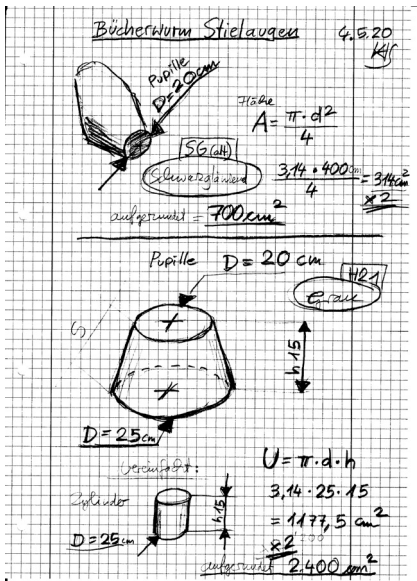 Bücherwurm Stielaugen 4.5.20
Pupille
D=20cm
Fläche
A = π·d² / 4
SG(alt)
Schwarzglänzend
3,14·400cm / 4 = 314cm²
x2
aufgerundet = 700cm²
Pupille D = 20 cm
H21
Grau
S
h 15
D = 25cm
vereinfacht:
U = π·d·h
Zylinder
3,14·25·15
h 15
= 1177,5 cm²
D = 25cm
1200
x2
aufgerundet 2.400 cm²